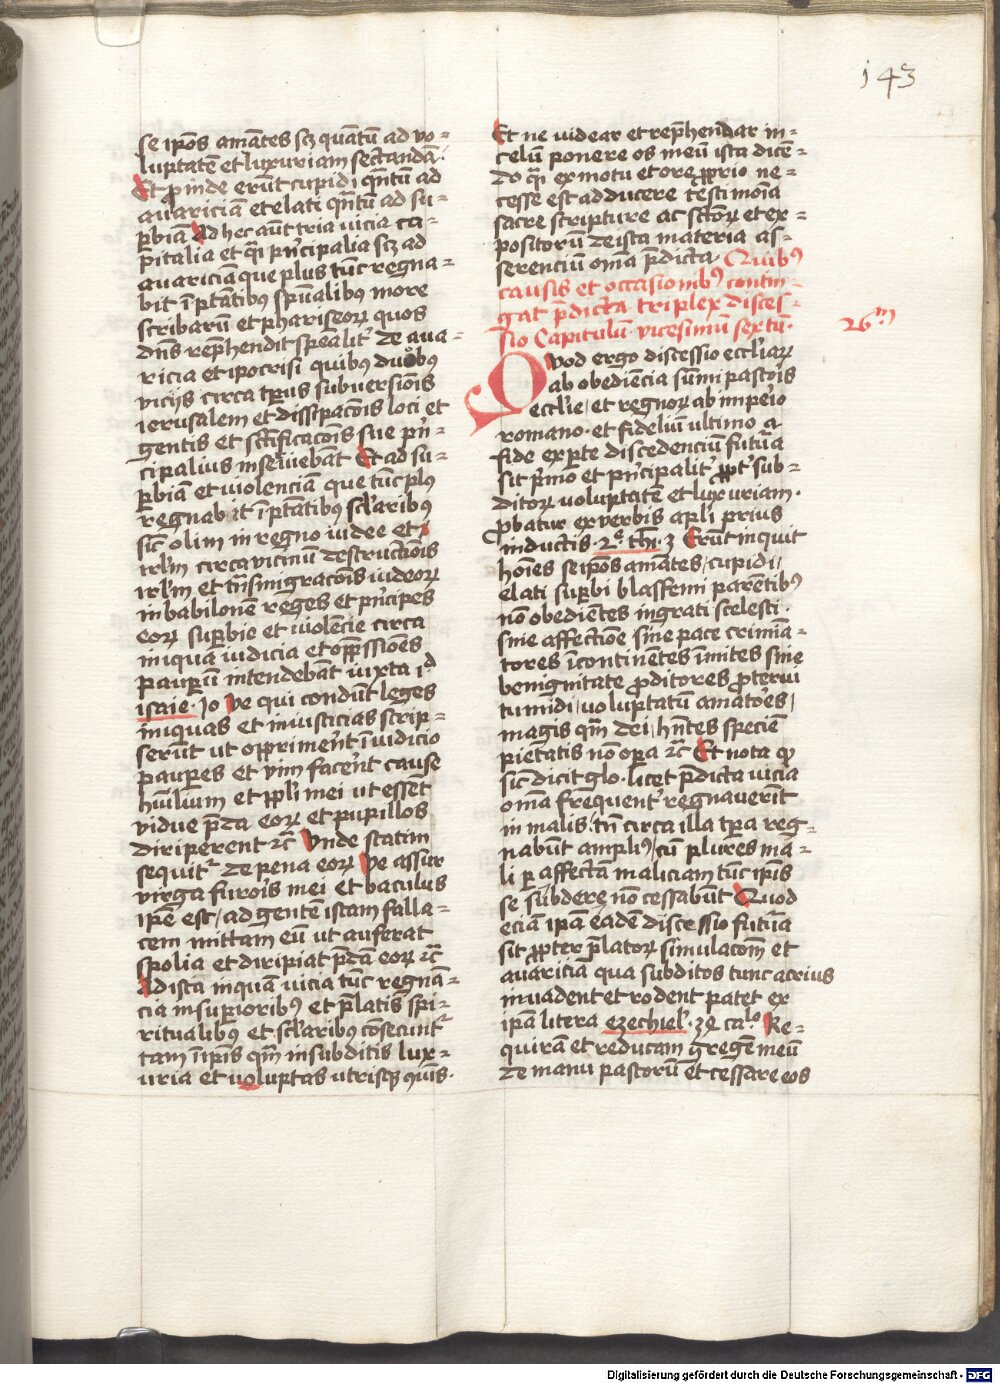 143
se ip̄os amātes scꝫ quātū ad vo=
luptatē et luxuriam sectandā.
Et ꝓinde erūt cupidi qn̄tū ad
auariciā et elati qn̄tū ad su=
ꝑbiā Ad hec aūt tria vicia ca=
pitalia et qͣi pͥncipalia scꝫ ad
auariciā que plus tūc regna=
bit ī p̄latibꝰ spūalibus more
scribarū et phariseoꝝ quos
dn̄s rep̄hendit spēalitʳ de aua=
ricia et ipocrisi quibus duobꝰ
vicijs circa tp̄us subuersiōis
ierusalem et dissipacōis loci et
gentis et sctīficacōis sue pͥn=
cipalius inseruiebāt Et ad su=
ꝑbiā et violenciā que tūc plꝰ
regnabāt ī p̄tātibꝰ sclaribꝰ
sic̄ olim in regno iudee et ī
irlm̄ circa vicinū destructiōis
irlm̄ et trāsmigracōis iudeoꝝ
in babilonē reges et pͥncipes
eoꝝ suꝑbie et violēcie circa
iniqua iudicia et opp̄ssiōes
pauꝑū intendebāt iuxta id
isaie. 10 ve qui condūt leges
iniquas et iniusticias scrip=
serūt ut opprimeret ī iudicio
pauꝑes et vim facerēt cause
hūilium et ppl̄i mei ut essēt
vidue p̄da eoꝝ et pupillos
diriperent ꝛc̄ Vnde statim
sequitʳ de pena eoꝝ Ve assur
virga furoris mei et baculus
ipē est / ad gentē istam falla=
cem mittam eū ut auferat
spolia et diripiat p̄dā eoꝝ ꝛc̄
Ad ista inquam vicia tūc regnā=
cia in suꝑioribꝰ et p̄latis spi=
ritualibus et sclaribus cōsecūtʳ
tam ī ip̄is qm̄ in subditis lux=
uria et voluptas utrisqꝫ quīs.
Et ne videar et rep̄hendar in=
celū ponere os meū ista dicē=
do qͣi ex motu et ore ꝓprio ne=
cesse est adducere testimoīa
sacre scripture ac sctōꝝ et ex=
positorū de ista materia as=
serenciū om̄ia p̄dicta. Quibꝰ
causis et occasionibꝰ contin=
gat p̄dicta triplex disces=
sio Capitulū vicesimū sextū.
26m
Quod ergo discessio eccl̄iaꝝ
ab obediēcia sūmi pastoris
eccl̄ie / et regnoꝝ ab impeio
romano. et fideliū ultimo a
fide ex ꝑte discedenciū futūa
sit pͥmo et pͥncipalitʳ ꝓptʳ sub=
ditoꝝ voluptatē et luxuriam.
ꝓbatur ex verbis apl̄i prius
inductis. 2ᵉ. thi. 3 Erūt inquit
hoīes seip̄os amātes / cupidi /
elati suꝑbi blasfemi parētibꝰ
nō obediētes ingrati scelesti.
sine affectiōe sine pace crimīa=
tores īcontinētes īmites sine
benignitate ꝓditores ꝓterui
tumidi / voluptatū amatoēs /
magis qm̄ dei / hn̄tes speciē
pietatis nō oꝑa ꝛc̄ Et nota ꝙ
sic̄ dicit glo. licet p̄dicta vicia
om̄ia frequentʳ regnauerīt
in malis. tn̄ circa illa tꝑa reg=
nabūt ampliꝰ / cū plures ma=
li ꝑ affectatā maliciam tūc ip̄is
se subdere nō cessabūt Quod
eciā ipā eadē discessio futūa
sit ꝓpter p̄latoꝝ simulacōem et
avaritiā qua subditos tunc acrius
inuadent et rodent patet ex
ipā litera ezechiel. 34 ca.lo Re=
quirā et reducam gregē meū
de manu pastorū et cessare eos
Digitalisierung gefördert durch die Deutsche Forschungsgemeinschaft - DFG